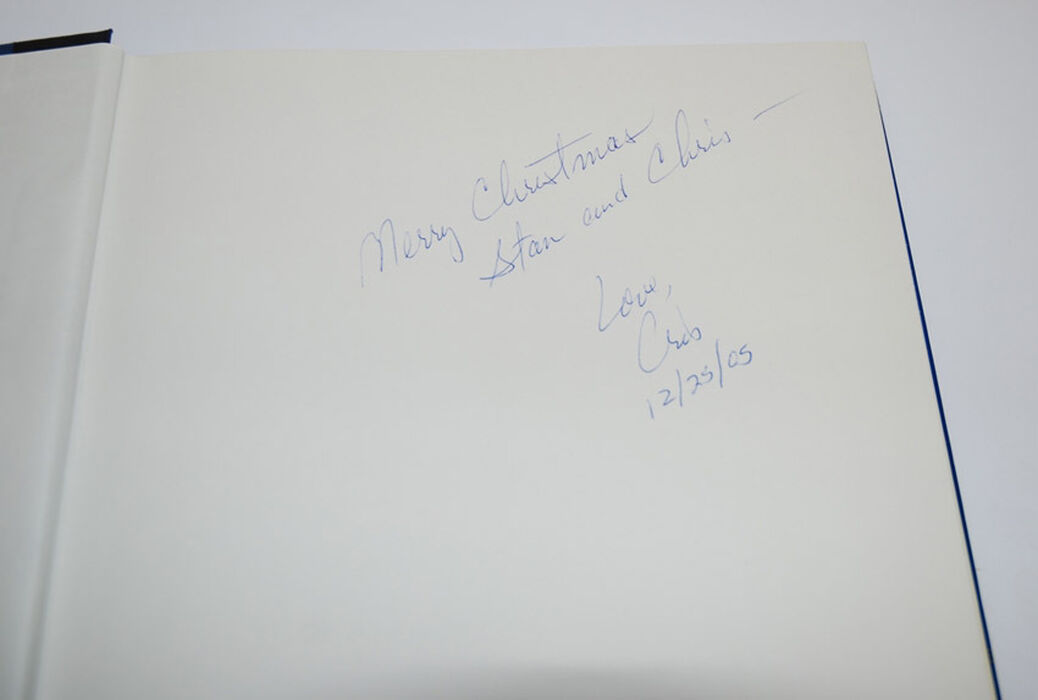 Merry Christmas
Stan and Chris —
Love,
12/25/05